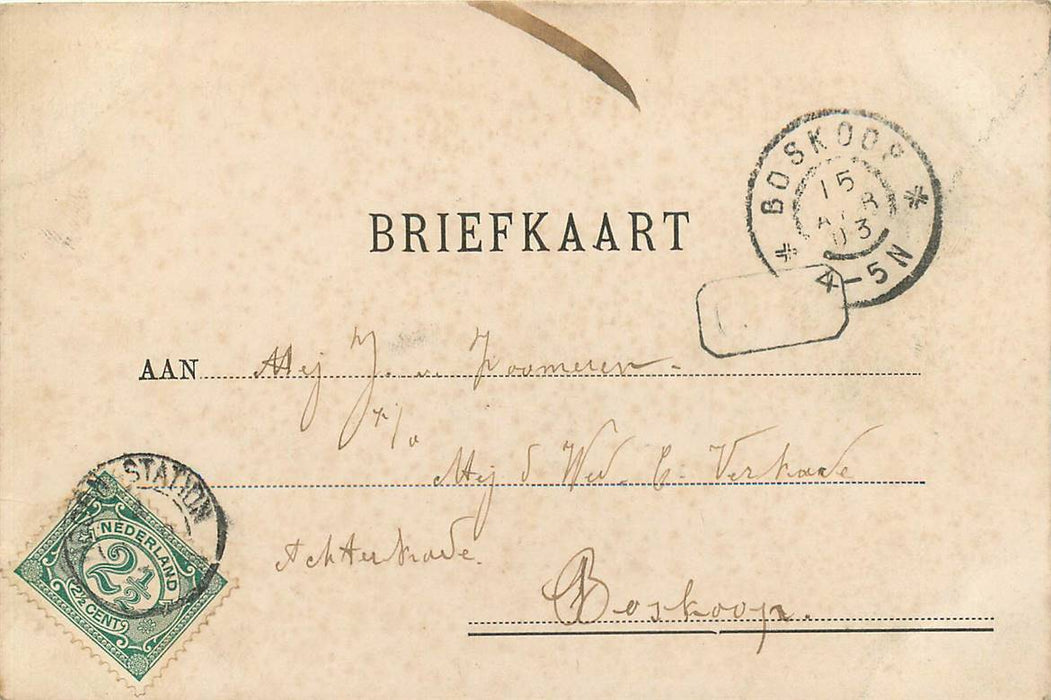 BOSKOOP
15
APR
03
4-5N
BRIEFKAART
AAN Mej J. v. Zoomeren.
p/a
Mej d Wed. C. Verkade
Achterkade.
Boskoop.
STATION
NEDERLAND
2 1/2
2 1/2 CENT